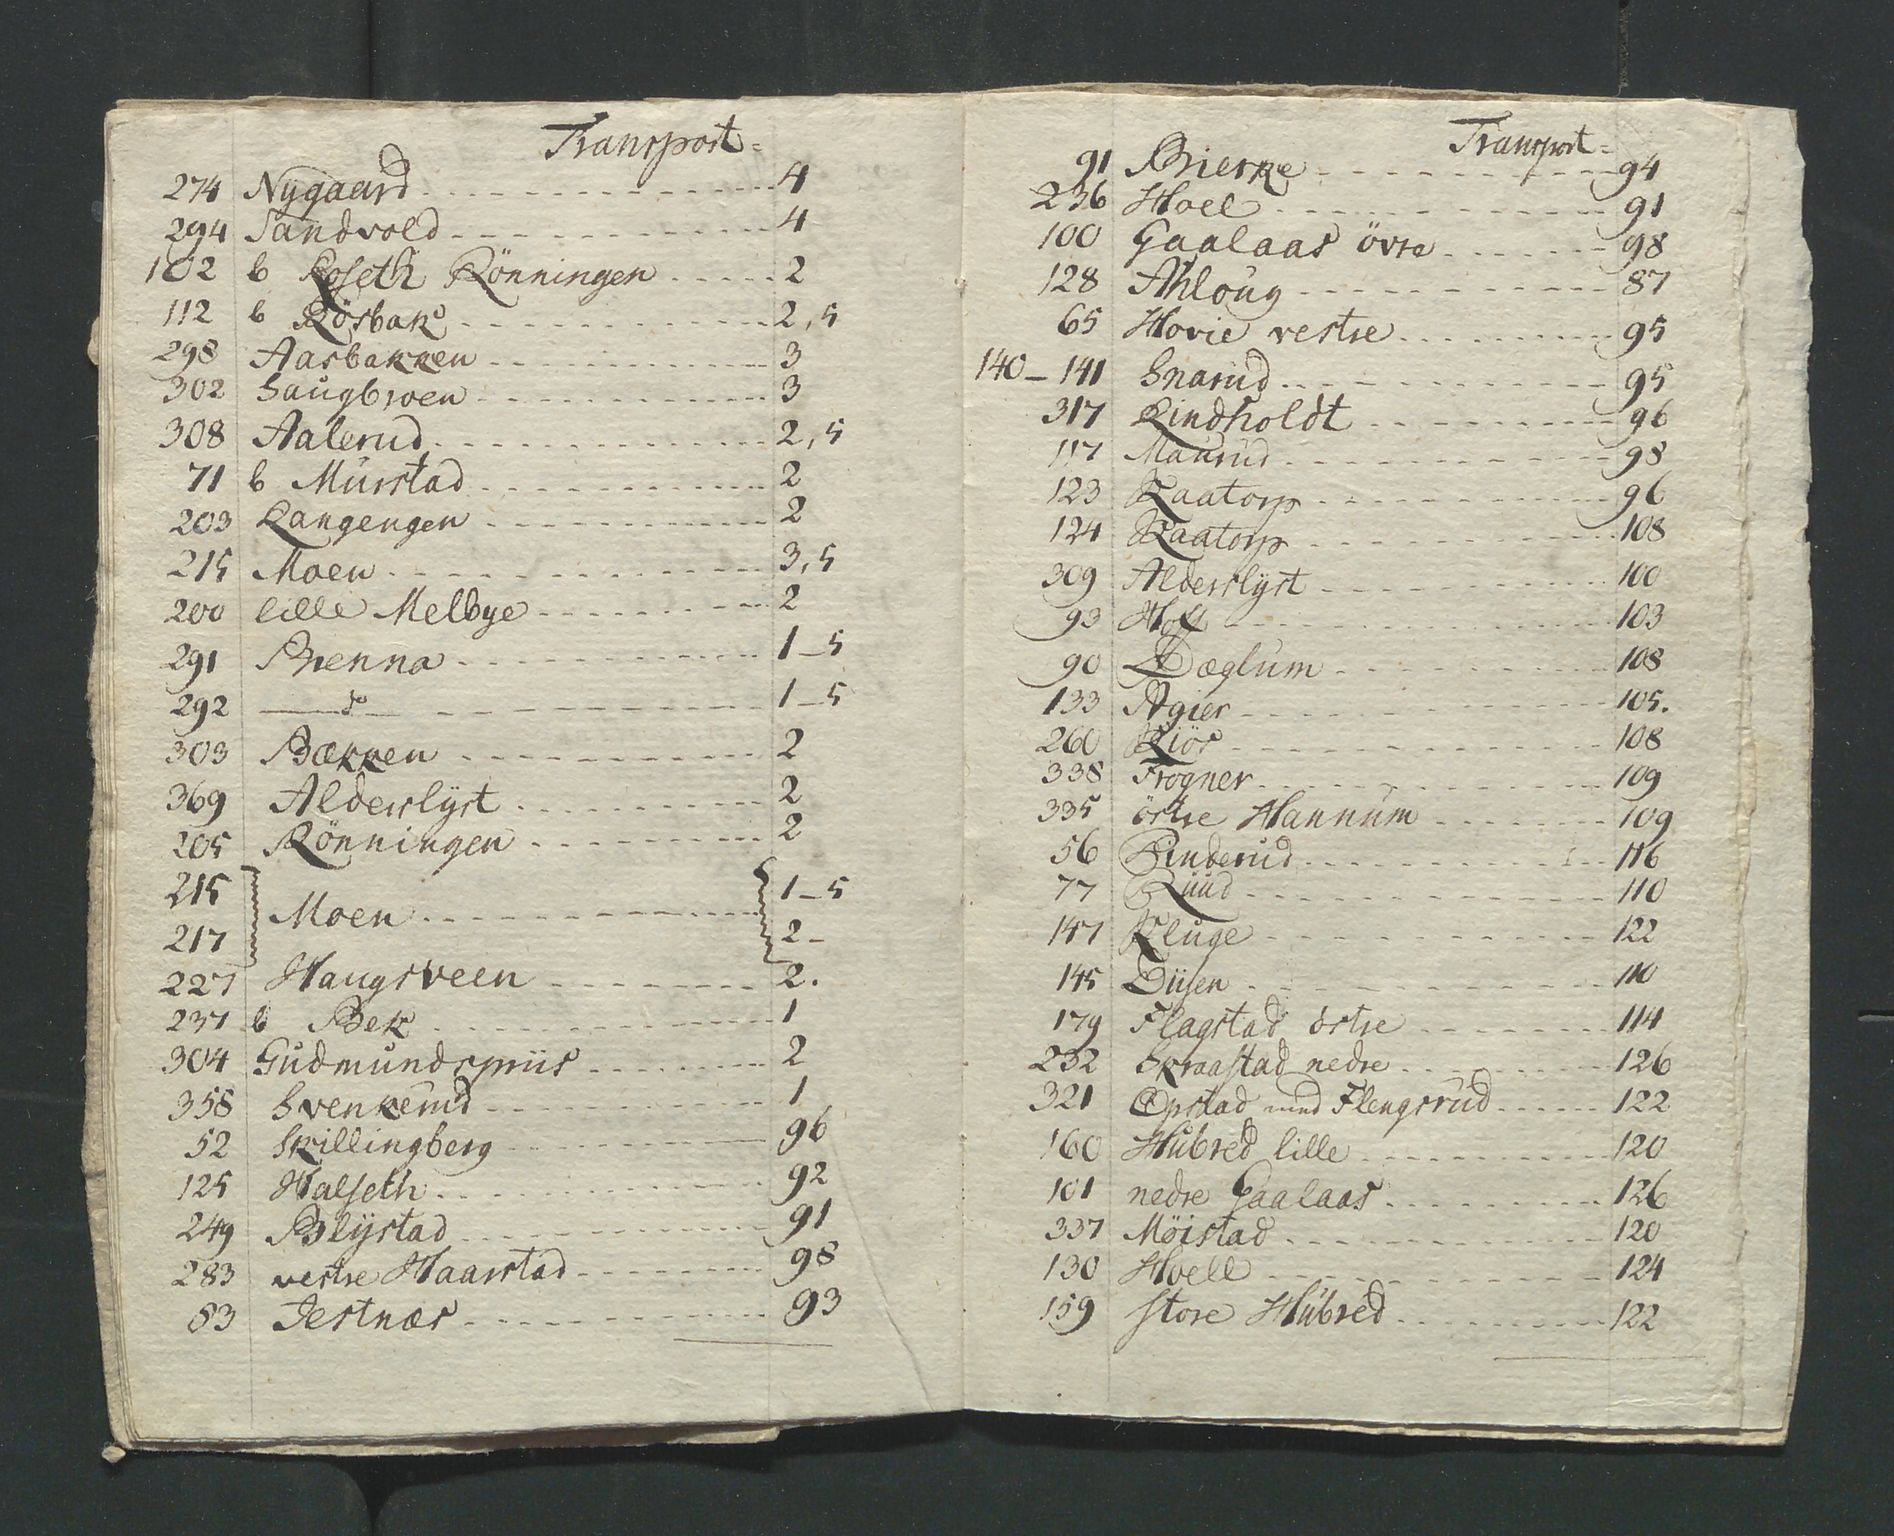 Transport
274 Nygaard 4
294 Sandvold 4
102 b Roseth Rönningen 2
112 b Rösbak 2,5
298 Aasbakken 3
302 Saugbroen 3
308 Aalerud 2,5
71 b Murstad 2
203 Langengen 2
215 Moen 3,5
200 lille Melbye 2
291 Brenna 1_5
292 1_5
303 Bækken 2
369 Alderslyst 2
205 Rönningen 2
215 1_5
Moen
217 2_
227 Haugsveen 2.
237 b Bek 1
304 Gudmundspriis 2
358 Svenkerud 1
52 Skillingberg 96
125 Halseth 92
249 Blystad 91
283 vestre Haarstad 98
83 Jestnæs 93
Transport
91 Brierke 94
236 Hoel 91
100 Gaalaas övre 98
128 Ahloug 87
65 Hovie vestre 95
140_141 Snarud 95
317 Lindholdt 96
117 Maurud 98
123 Kaatorp 96
124 Kaatorp 108
309 Alderslyst 100
93 Hoff 103
90 Dæglum 108
133 Agier 105.
260 Kiös 108
338 Frogner 109
335 östre Hannum 109
56 Binderud 116
77 Ruud 110
147 Kluge 122
145 Diisen 110
179 Flagstad östre 114
232 Skraastad nedre 126
321 Opstad med Flengsrud 122
160 Hubred lille 120
101 nedre Gaalaas 126
337 Møistad 120
130 Hoell 124
159 store Hubred 122